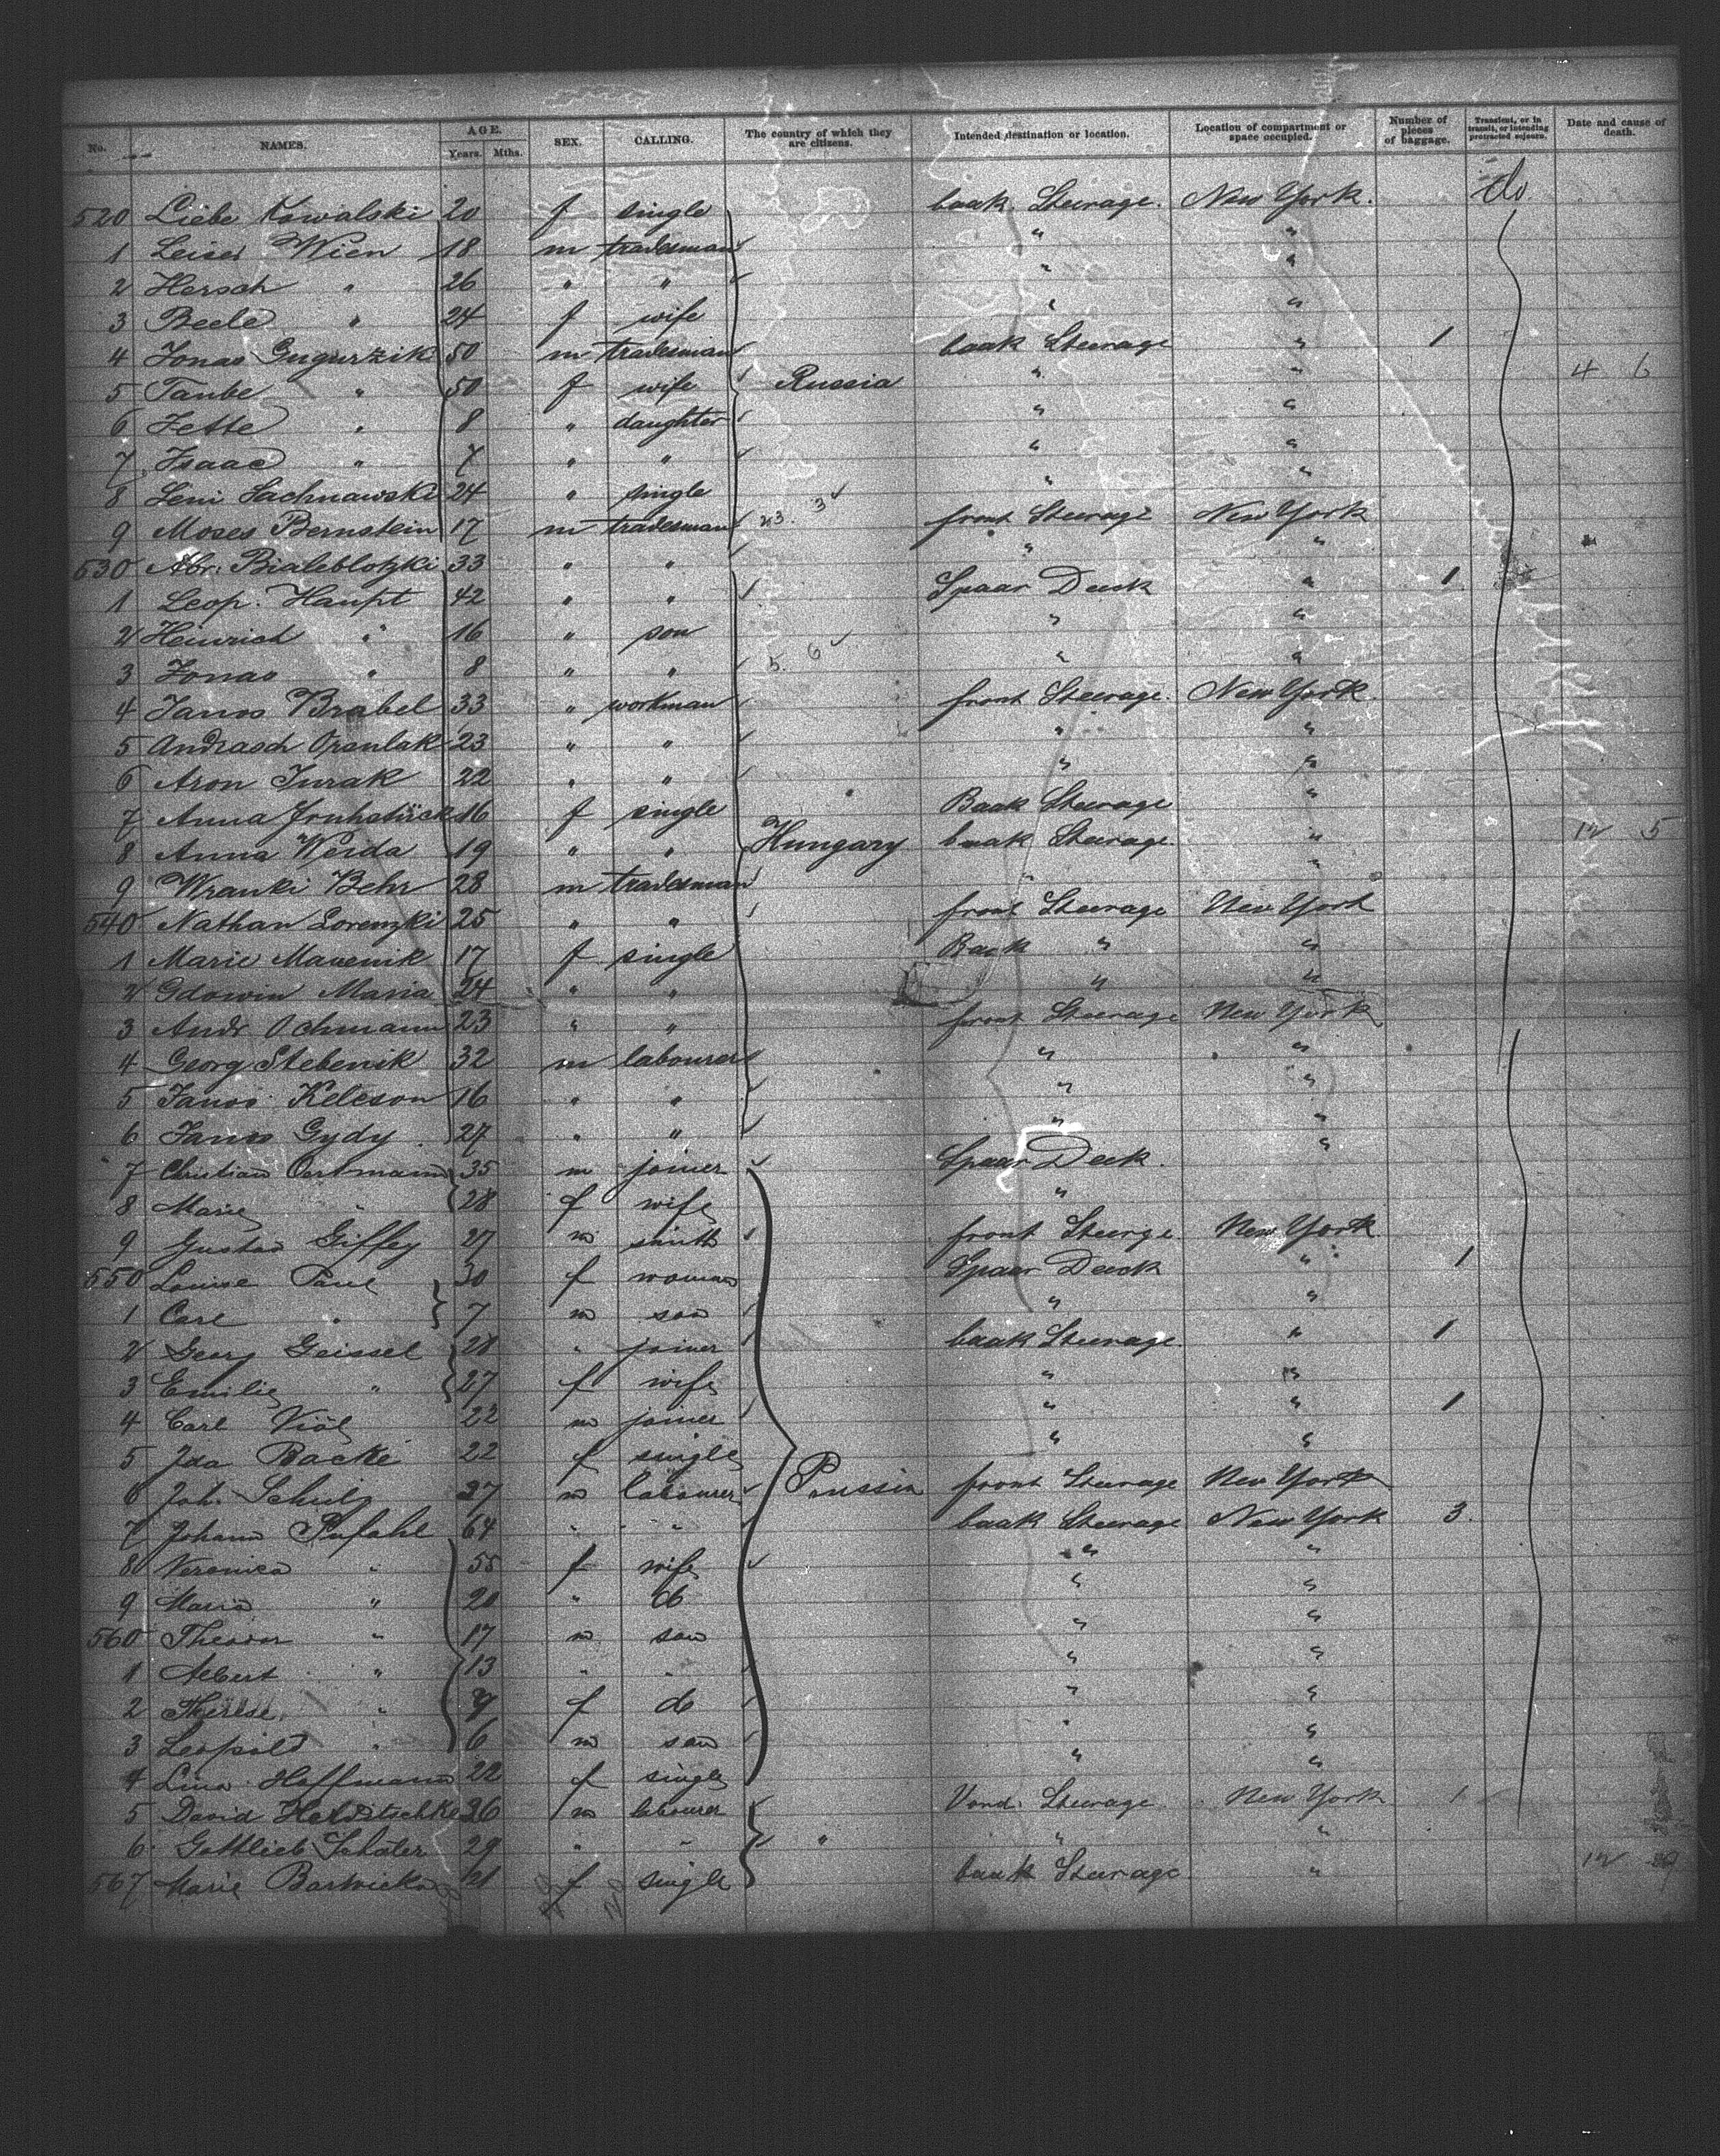 No. NAMES. AGE. Years. Mths. SEX. CALLING. The country of which they are citizens. Intended destination or location. Location of compartment or space occupied. Number of pieces of baggage. Transient, or in transit, or intending protracted sojourn. Date and cause of death.
520 Liebe Kowalski 20 f single baak Steerage. New York. do.
1 Leiser Wien 18 m tradesman " "
2 Hersch " 26 " " " "
3 Beele " 24 f wife " "
4 Jonas Gugurzik 50 m tradesman baak Steerage " 1
5 Taube " 50 f wife Russia " " 4 6
6 Jette " 8 " daughter " "
7 Isaac " 7 " " " "
8 Leni Sachnawski 24 " single " "
9 Moses Bernstein 17 m tradesman 23. 3 front Steerage New York
530 Abr. Bialeblotzki 33 " " " "
1 Leop. Haupt 42 " " Spaar Deck " 1
2 Heinrich " 16 " son " "
3 Jonas " 8 " " 5. 6 " "
4 Janos Brabel 33 " workman front Steerage. New York.
5 Andrasch 23 " " " "
6 Aron Jurak 22 " " " "
7 Anna Fruhstück 16 f single Baak Steerage "
8 Anna Werda 19 " " Hungary baak Steerage. " 12 5
9 Wranki Behr 28 m tradesman " "
540 Nathan Lorenzki 25 " " front Steerage New York
1 Marie Mavenik 17 f single Back " "
2 Gdowin Maria 24 " " " "
3 Andr. Ochmann 23 " " front Steerage New York
4 Georg Stebenik 32 m labourer " "
5 Janos Keleson 16 " " " "
6 Janos Gydy 27 " " " "
7 Christian Oertmann 35 m joiner Spaar Deck. "
8 Marie " 28 f wife "
9 Gustav Giffey 27 m smith front Steerge New York
550 Louise Paul 30 f woman Spaar Deck " 1
1 Carl " 7 m son " "
2 Georg Geissel 28 " joiner baak Steerage. " 1
3 Emilie " 27 f wife " "
4 Carl 22 m joiner " " 1
5 Ida Backe 22 f single " "
6 Joh. Schulz 27 m labourer Prussia front Steerage New York
7 Johann Pufahl 64 " " baak Steerage New York 3.
8 Veronica " 55 f wife " "
9 Maria " 20 " do " "
560 Theodor " 17 m son " "
1 Albert " 13 " " " "
2 Therese " f do " "
3 Leopold " 6 m son " "
4 Lina Hoffmann 22 f single " "
5 David 36 m labourer Vord. Steerage New York 1
6 Gottlieb Schäler 29 " " " " "
567 Marie Barwicka 21 f single baak Steerage " 12